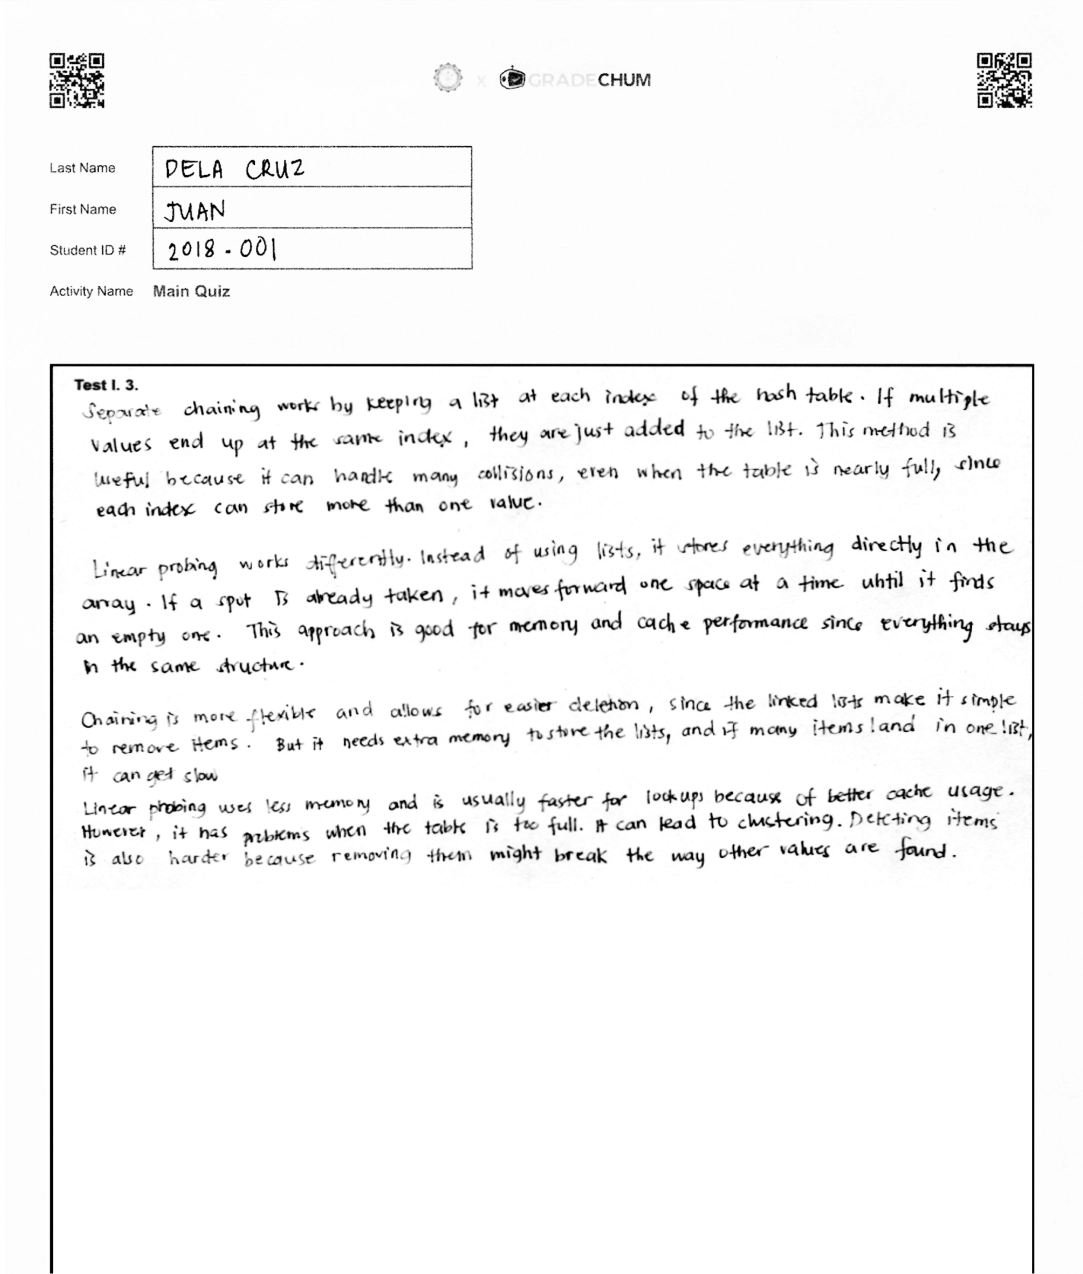 x GRADECHUM
Last Name DELA CRUZ
First Name JUAN
Student ID # 2018-001
Activity Name Main Quiz
Test I. 3.
Separate chaining works by keeping a list at each index of the hash table. If multiple
values end up at the same index, they are just added to the list. This method is
useful because it can handle many collisions, even when the table is nearly full, since
each index can store more than one value.
Linear probing works differently. Instead of using lists, it stores everything directly in the
array. If a spot is already taken, it moves forward one space at a time until it finds
an empty one. This approach is good for memory and cache performance since everything stays
in the same structure.
Chaining is more flexible and allows for easier deletion, since the linked lists make it simple
to remove items. But it needs extra memory to store the lists, and if many items land in one list,
it can get slow
Linear probing uses less memory and is usually faster for lookups because of better cache usage.
However, it has problems when the table is too full. It can lead to clustering. Deleting items
is also harder because removing them might break the way other values are found.